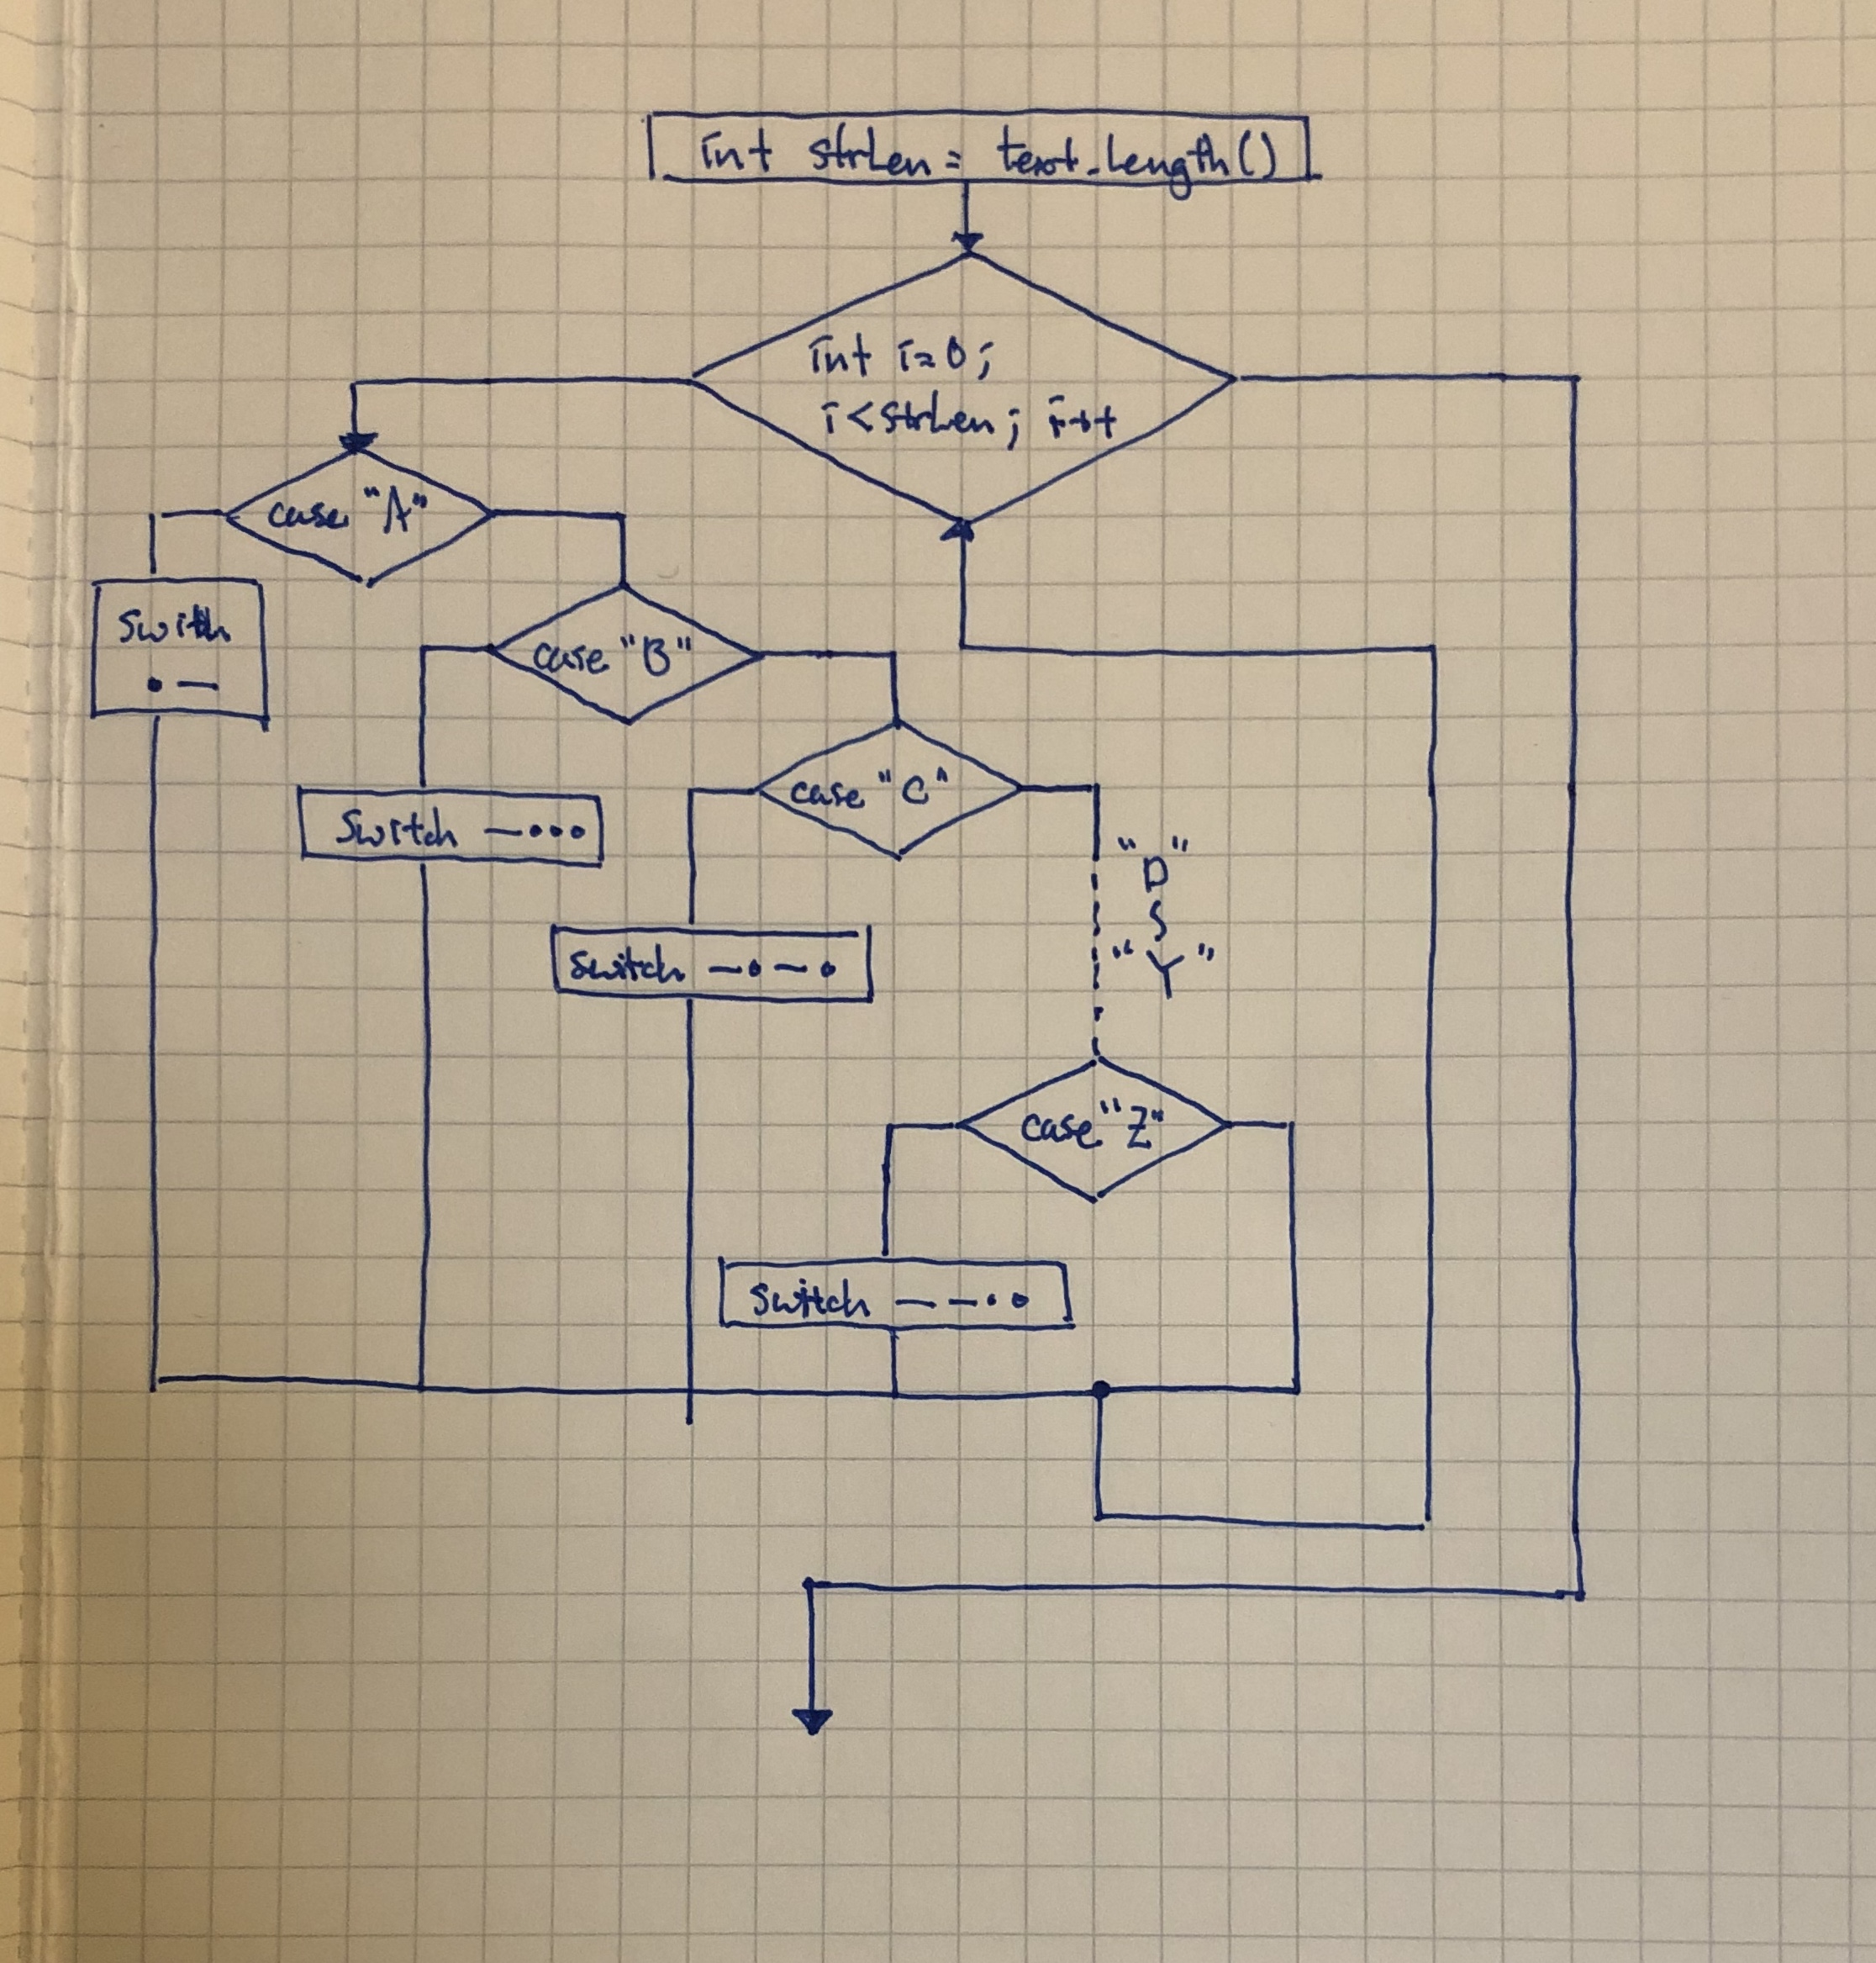 int strLen = text.length()
int i=0;
i<strLen; i++
case "A"
switch
•—
case "B"
switch —•••
case "C"
switch —•—•
"D"
S
"Y"
case "Z"
switch ——••